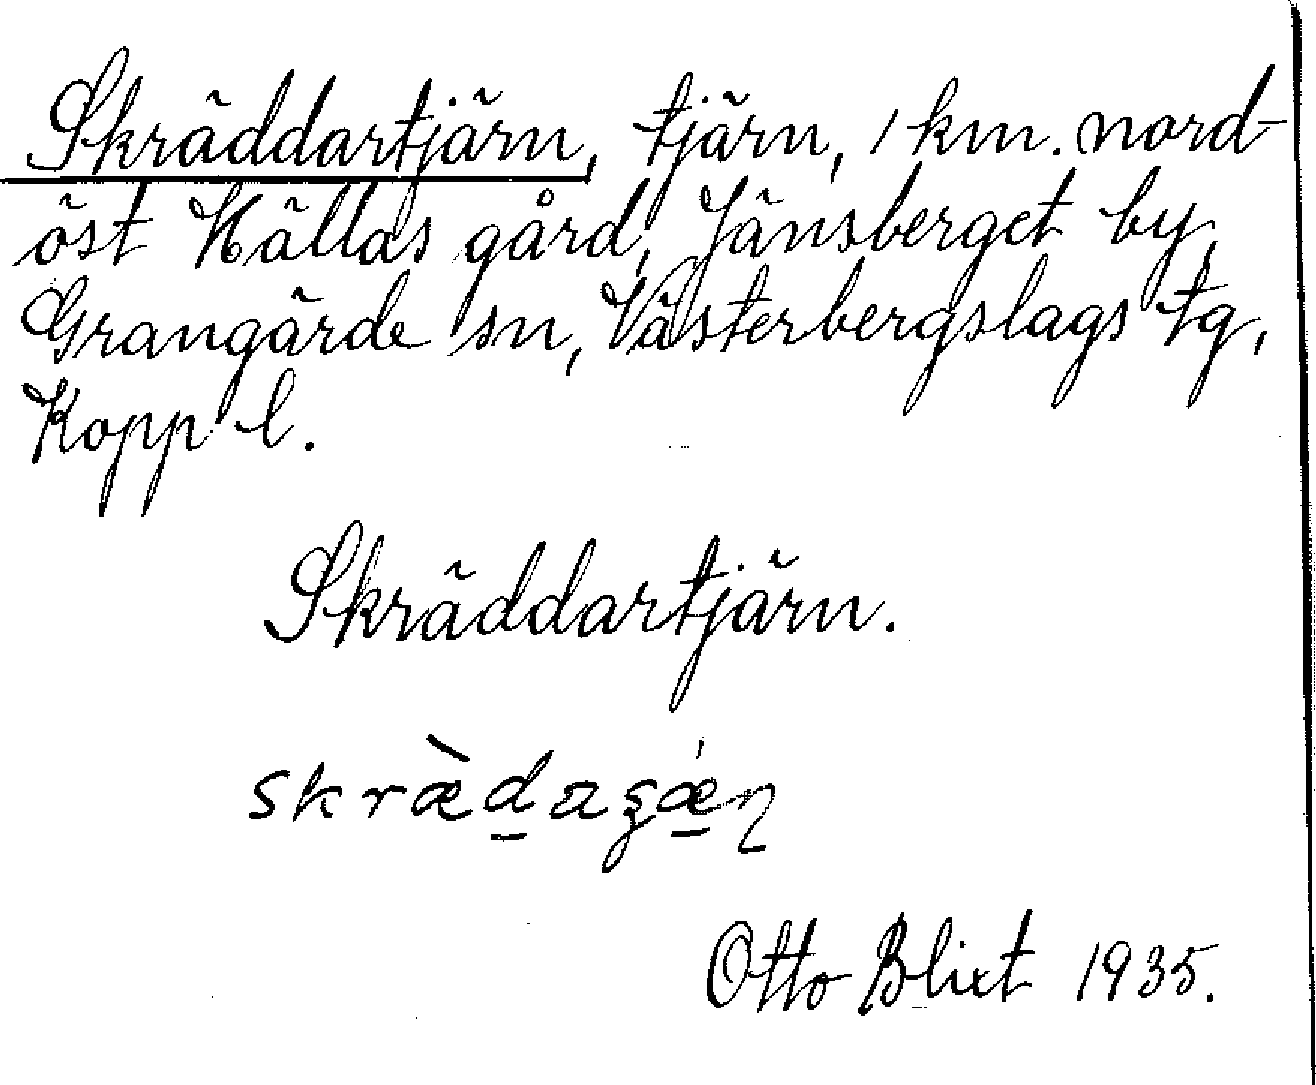 Skräddartjärn, tjärn, 1 km. nord-
öst Hällas gård, Jänsberget by,
Grangärde sn, Västerbergslags tg,
Kopp l.
Skräddartjärn.
Otto Blixt 1935.